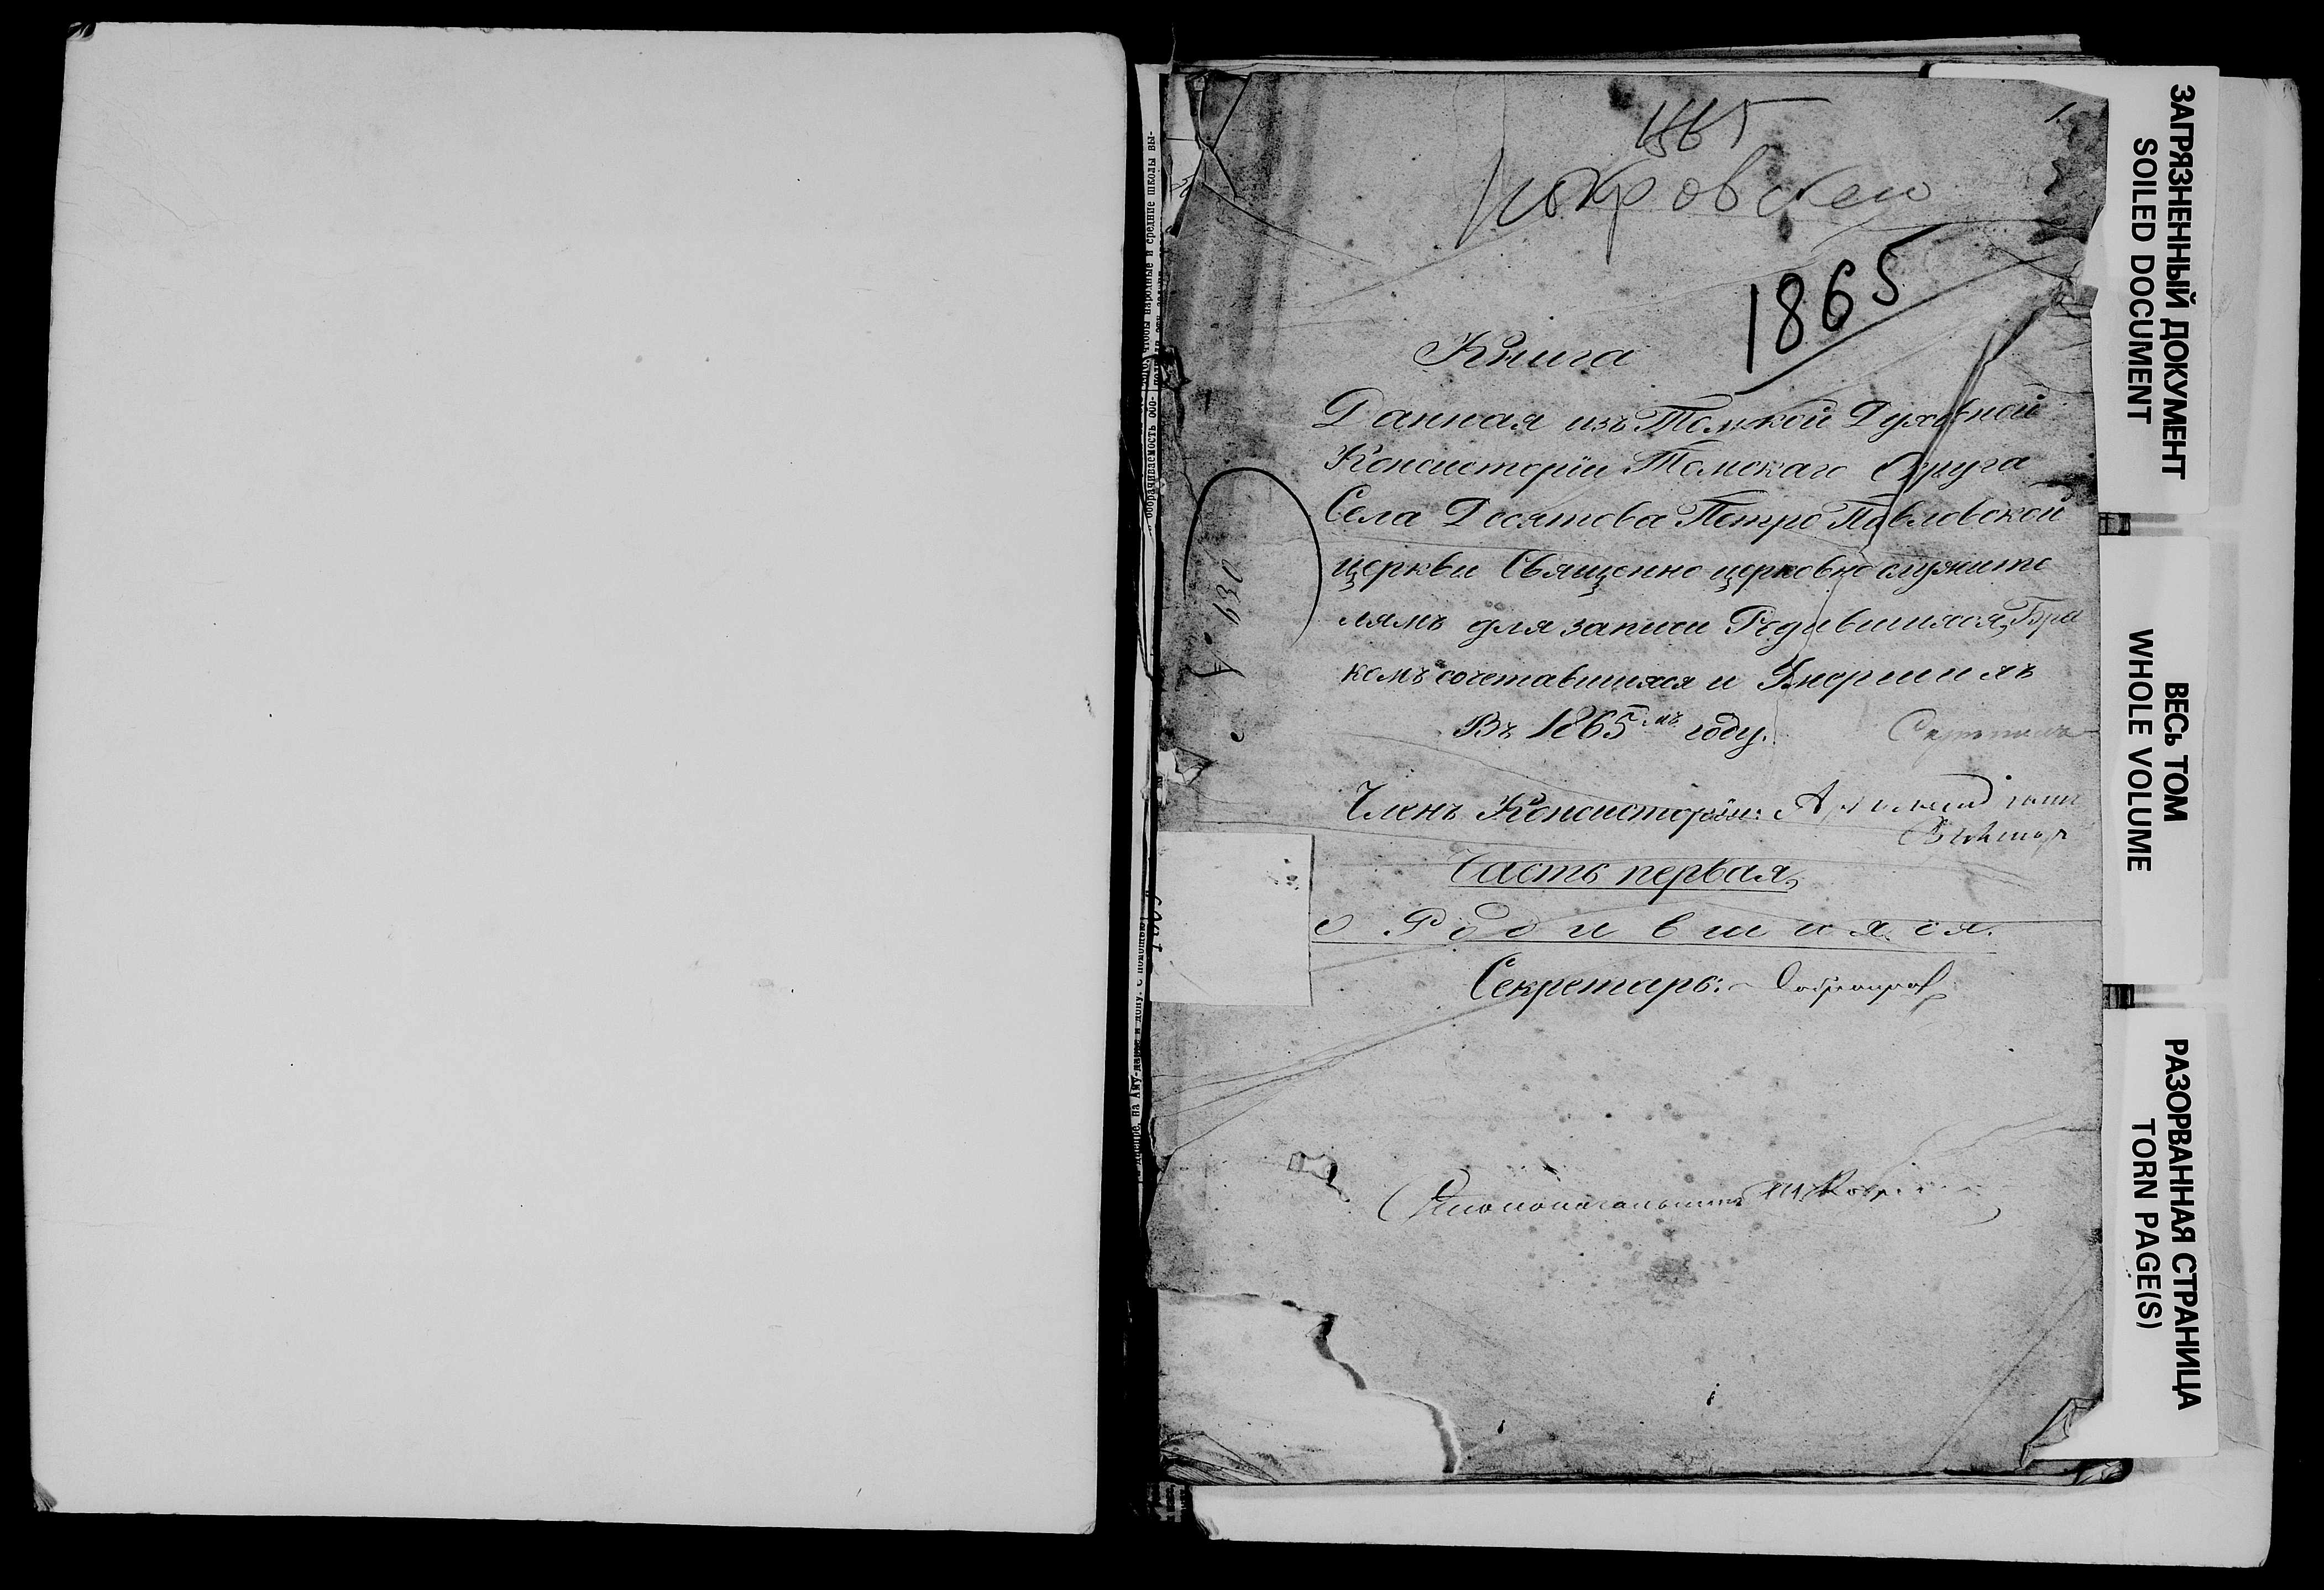 1865
1.
Покровской
1865
Книга
Данная изъ Томской Духовной
Консисторіи Томскаго Округа
Села Десятова Петро Павловской
церкви Священно церковно служите
лямъ для записи Родившихся, Бра
комъ сочетавшихся и Умершихъ
Въ 1865мъ году.
Членъ Консисторіи: Архимандритъ
Викторъ
Часть первая,
о Родившихся.
Секретарь:
Столоначальникъ
ЗАГРЯЗНЕННЫЙ ДОКУМЕНТ
SOILED DOCUMENT
ВЕСЬ ТОМ
WHOLE VOLUME
РАЗОРВАННАЯ СТРАНИЦА
TORN PAGE(S)